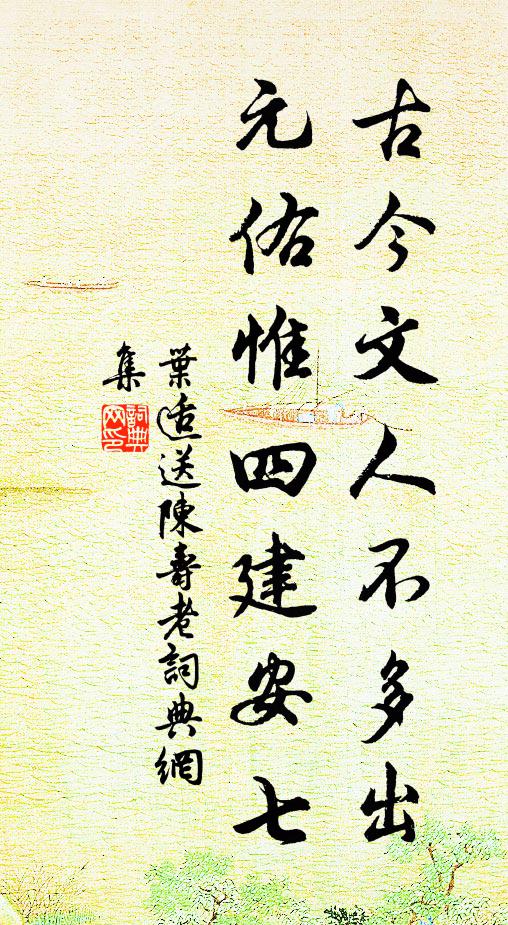 古今文人不多出
元佑惟四建安七
葉适送陳壽老詞典網
集
詞典
网印